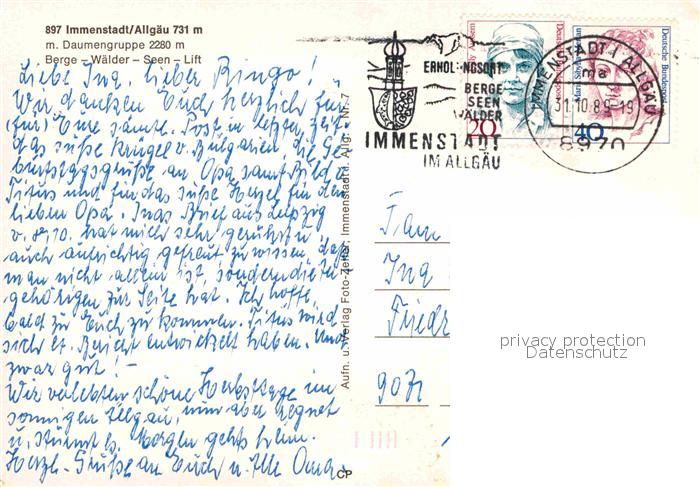 897 Immenstadt/Allgäu 731 m
m. Daumengruppe 2280 m
Berge – Wälder – Seen – Lift
Liebe Ina, lieber Ringo!
Wir danken Euch herzlich für
(für) Eure sämtl. Post in letzter Zeit
das süße v. Bulgarien, die Ge-
burtstagsgrüße an Opa samt Bild
Titus und für das süße Herzel für den
lieben Opa. Inas Brief aus Leipzig
v. 10. hat mich sehr gerührt u.
auch aufrichtig gefreut zu wissen, daß
man nicht allein ist, sondern die Zu-
gehörigen zur Seite hat. Ich hoffe,
bald zu Euch zu kommen. Titus wird
sich lt. Bericht entwickelt haben. Und
zwar gut! –
Wir verlebten schöne Herbsttage im
sonnigen Allgäu, nun aber regnet
u. stürmt es. Morgen gehts heim.
Herzl. Grüße an Euch u. Alle Oma
Aufn. u. Verlag Foto-Zettler, Immenstadt i. Allg. Nr. 7
CP
ERHOLUNGSORT
BERGE
SEEN
WÄLDER
IMMENSTADT
IM ALLGÄU
IMMENSTADT I ALLGÄU
ma
31.10.8 -19
8970
20
40
Deutsche Bundespost
Fam
Ina
Friedr
90
privacy protection
Datenschutz